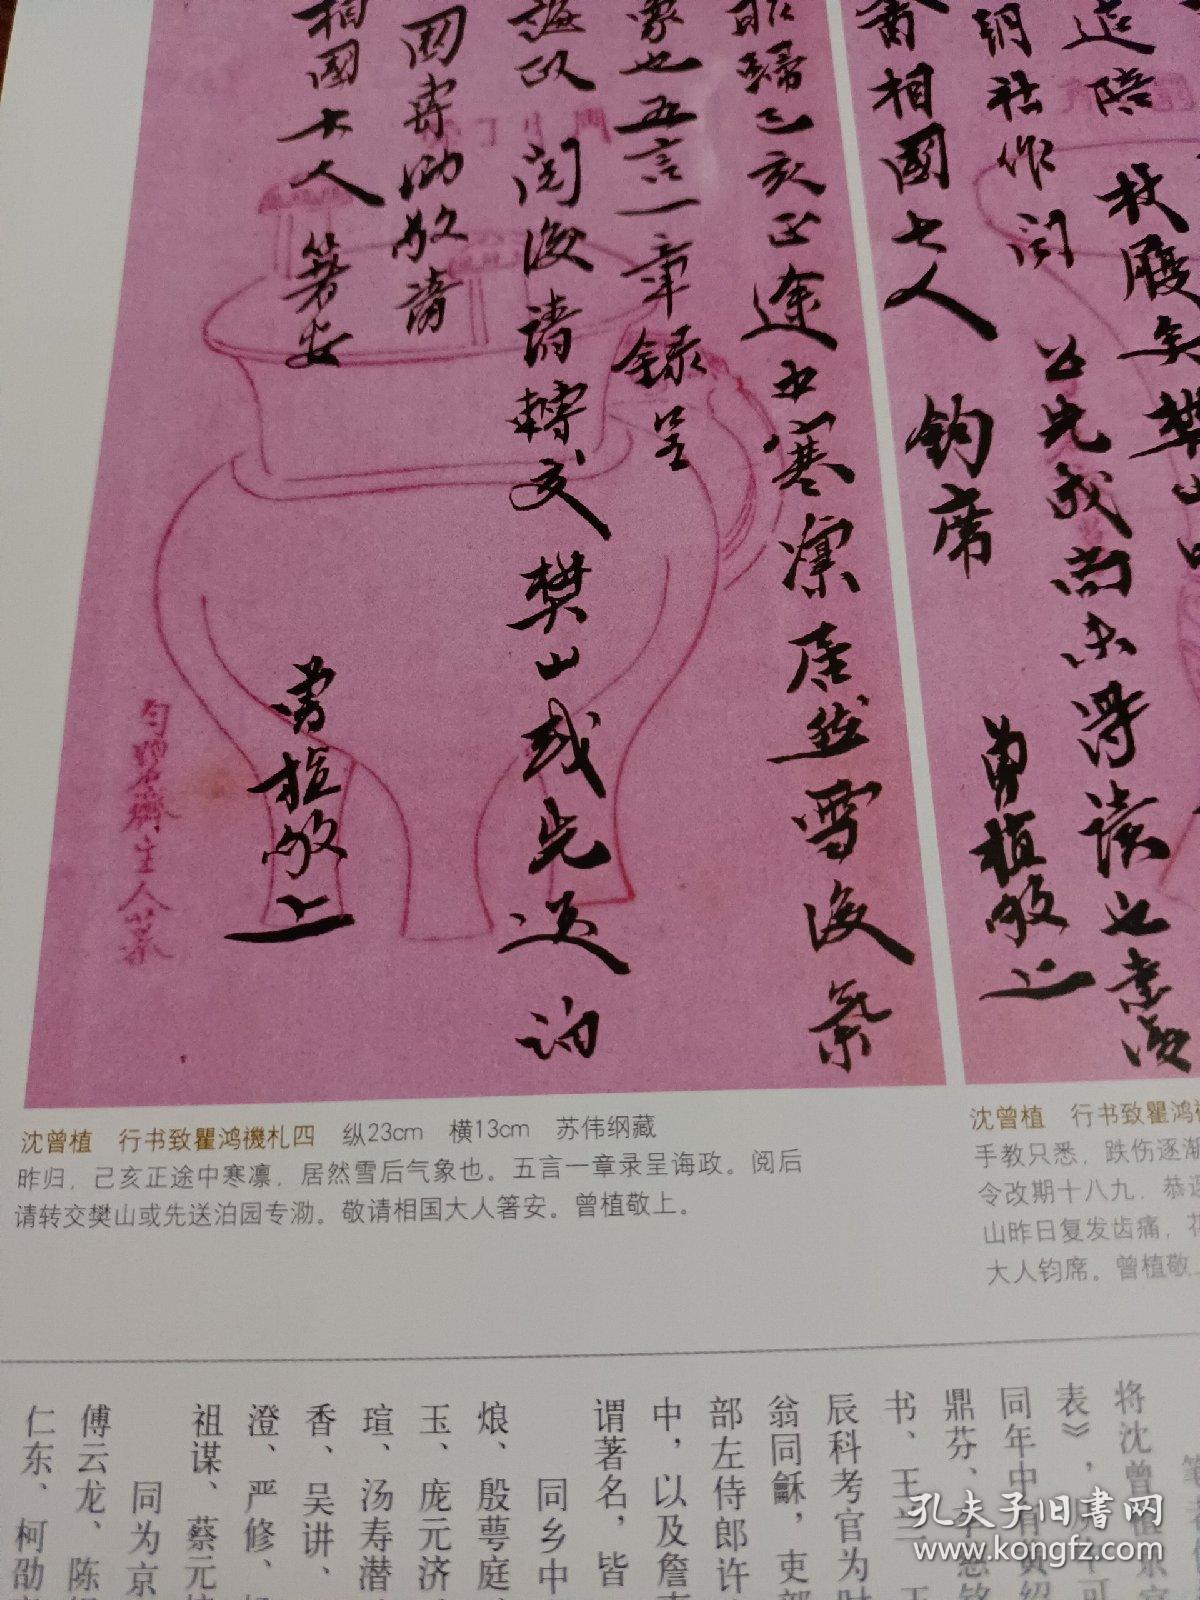 遠陪 杖履矣樊山昨
朝祉作 閱 公先成尚未得讀也書復
相國大人 鈞席
曾植敬上
昨歸己亥正途中寒凛居然雪後氣
象也五言一章錄呈
誨政 閱後請轉交樊山或先送泊
園專泐敬請
相國大人 箸安
曾植敬上
匋齋主人
沈曾植 行书致瞿鸿禨札四 纵23cm 横13cm 苏伟纲藏
昨归，己亥正途中寒凛，居然雪后气象也。五言一章录呈诲政。阅后
请转交樊山或先送泊园专泐。敬请相国大人箸安。曾植敬上。
沈曾植 行书致瞿鸿
手教只悉，跌伤逐渐
令改期十八九，恭
山昨日复发齿痛，
大人钧席。曾植敬
将沈曾植
表》，
同年中有黄绍
鼎芬、
书、王兰、
辰科考官为
翁同龢，吏部
部左侍郎许
中，以及詹
谓著名，皆
同乡中
烺、殷萼庭
玉、庞元济
瑄、汤寿潜
香、吴讲、
澄、严修、
祖谋、蔡元
同为京
傅云龙、陈
仁东、柯劭
孔夫子旧书网
www.kongfz.com